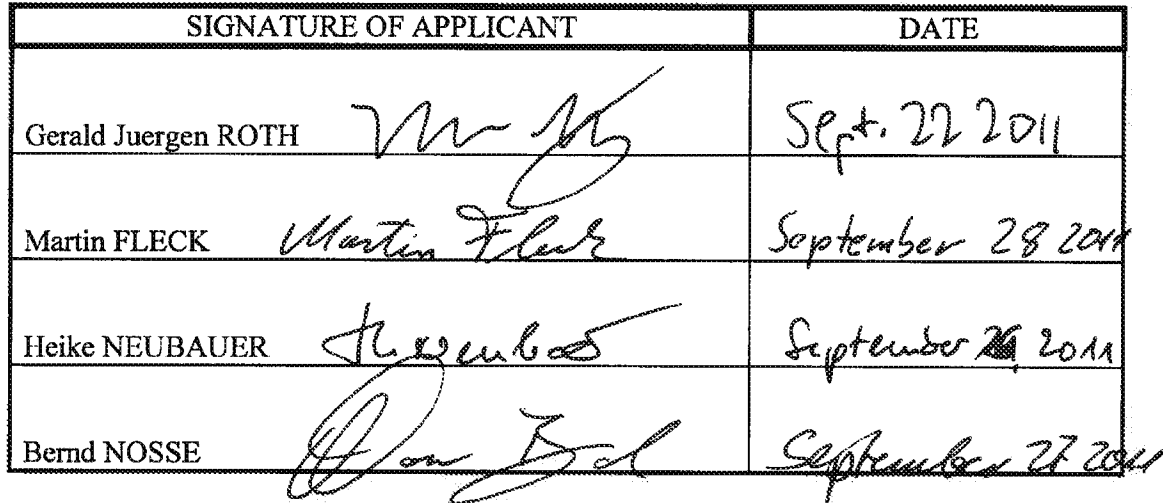 SIGNATURE OF APPLICANT DATE
Gerald Juergen ROTH Sept. 22 2011
Martin FLECK Martin Fleck September 28 2011
Heike NEUBAUER September 2011
Bernd NOSSE September 27 2011